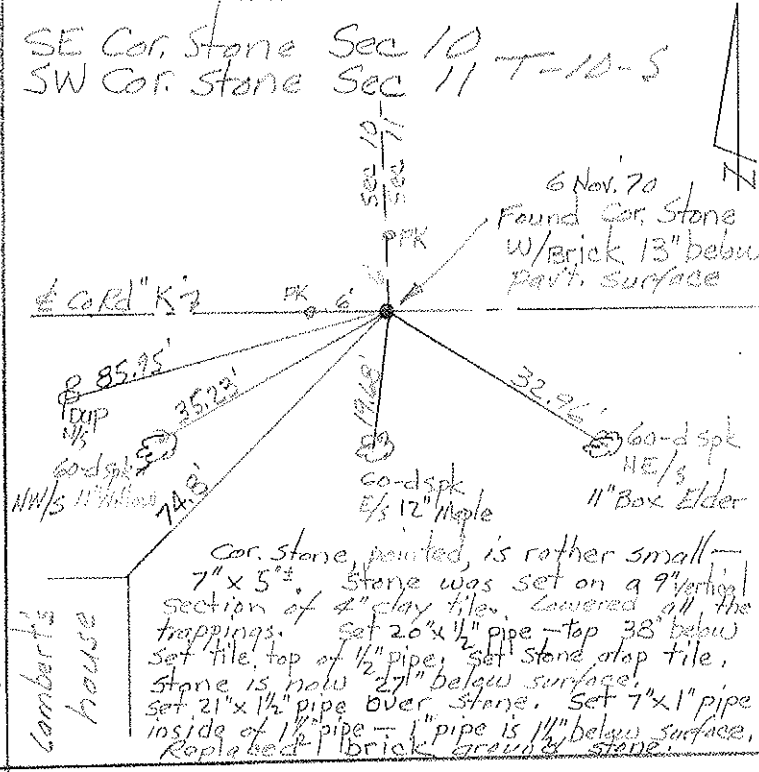 SE Cor. Stone Sec 10
SW Cor. Stone Sec 11 T-10-S
Sec 10
Sec 11
6 Nov. '70
Found Cor. Stone
W/Brick 13" below
Pav't. surface
PK
6'
N
℄ Co Rd "K"
PK 6'
85.95'
35.23'
74.8'
19.68'
32.96'
60-d spk
NW/s 11" Willow
60-d spk
E/s 12" Maple
60-d spk
NE/s
11" Box Elder
Lambert's
house
Cor. stone, pointed, is rather small —
7" x 5"±. Stone was set on a 9" vertical
section of 4" clay tile. Lowered all the
trappings. Set 20" x 1/2" pipe - top 38" below
Set tile top of 1/2" pipe, set stone atop tile.
Stone is now 27" below surface.
Set 21" x 1 1/2" pipe over stone. Set 7" x 1" pipe
inside of 1 1/2" pipe - 1" pipe is 1 1/2" below surface.
Replaced brick around stone.